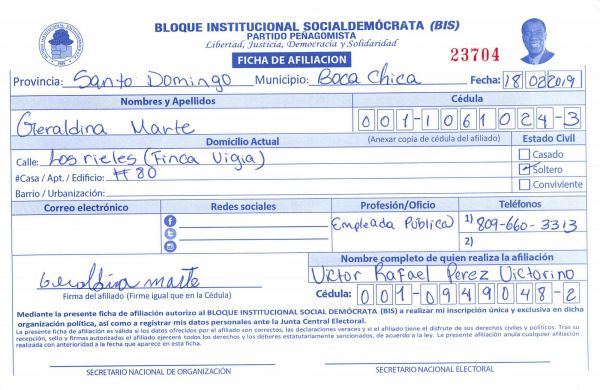 BLOQUE INSTITUCIONAL SOCIALDEMÓCRATA (BIS)
PARTIDO PEÑAGOMISTA
Libertad, Justicia, Democracia y Solidaridad
FICHA DE AFILIACIÓN
23704
Provincia: Santo Domingo Municipio: Boca Chica Fecha: 18 02 2019
Nombres y Apellidos Cédula
Geraldina Marte 001-1061024-3
(Anexar copia de cédula del afiliado)
Domicilio Actual Estado Civil
Calle: Los rieles (Finca Vigia) Casado
#Casa / Apt. / Edificio: # 80 Soltero
Barrio / Urbanización: Conviviente
Correo electrónico Redes sociales Profesión/Oficio Teléfonos
Empleada Pública 1) 809-660-3313
2)
Nombre completo de quien realiza la afiliación
Geraldina marte Victor Rafael Perez Victorino
Firma del afiliado (Firme igual que en la Cédula) Cédula: 001-0949048-2
Mediante la presente ficha de afiliación autorizo al BLOQUE INSTITUCIONAL SOCIAL DEMÓCRATA (BIS) a realizar mi inscripción única y exclusiva en dicha
organización política, así como a registrar mis datos personales ante la Junta Central Electoral.
La presente ficha de afiliación es valida si los datos ofrecidos por el afiliado son correctos, las declaraciones veraces y si el afiliado tiene el disfrute de sus derechos civiles y políticos. Tras su
recepción, sello y firmas autorizadas el afiliado ejercerá todos los derechos y los deberes estatutariamente sancionados, de acuerdo a la ley. La presente afiliación anula cualquier afiliación
realizada con anterioridad a la fecha que aparece en esta ficha.
SECRETARIO NACIONAL DE ORGANIZACIÓN SECRETARIO NACIONAL ELECTORAL